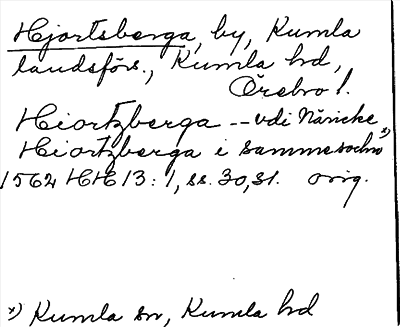 Hjortsberga, by, Kumla
landsförs., Kumla hd,
Örebro l.
Hiortzberga -- vdi Näricke
Hiortzberga i sammesochn *)
1562 HH 13:1, ss. 30, 31. orig.
*) Kumla sn, Kumla hd